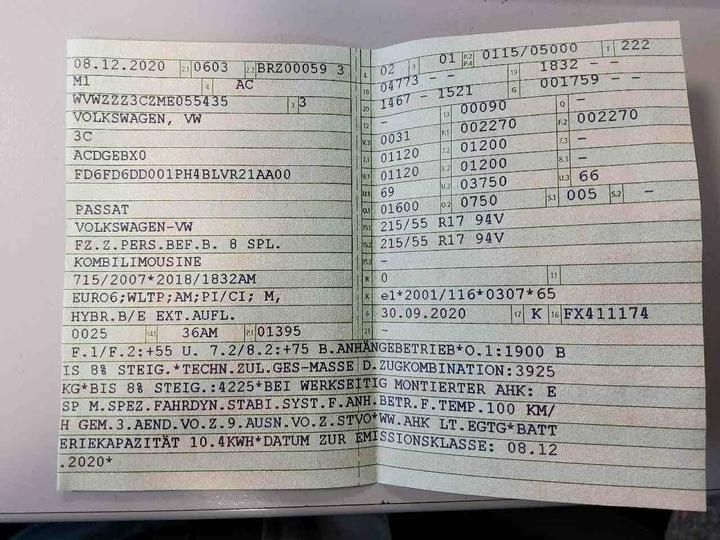 08.12.2020 2.1 0603 2.2 BRZ00059 3
M1 4 AC
WVWZZZ3CZME055435 3 3
VOLKSWAGEN, VW
3C
ACDGEBX0
FD6FD6DD001PH4BLVR21AA00
PASSAT
VOLKSWAGEN-VW
FZ.Z.PERS.BEF.B. 8 SPL.
KOMBILIMOUSINE
715/2007*2018/1832AM
EURO6;WLTP;AM;PI/CI; M,
HYBR.B/E EXT.AUFL.
0025 14.1 36AM P.1 01395
L 02 9 01 P.2 P.4 0115/05000 T 222
18 04773 - - 19 1832 - -
20 1467 - 1521 G 001759 - -
12 - 13 00090 Q -
V.7 0031 F.1 002270 F.2 002270
7.1 01120 7.2 01200 7.3 -
8.1 01120 8.2 01200 8.3 -
U.1 69 U.2 03750 U.3 66
O.1 01600 O.2 0750 S.1 005 S.2 -
15.1 215/55 R17 94V
15.2 215/55 R17 94V
15.3 -
R 0 11
K e1*2001/116*0307*65
6 30.09.2020 17 K 16 FX411174
21 -
F.1/F.2:+55 U. 7.2/8.2:+75 B.ANHÄNGEBETRIEB*O.1:1900 B
IS 8% STEIG.*TECHN.ZUL.GES-MASSE D.ZUGKOMBINATION:3925
KG*BIS 8% STEIG.:4225*BEI WERKSEITIG MONTIERTER AHK: E
SP M.SPEZ.FAHRDYN.STABI.SYST.F.ANH.BETR.F.TEMP.100 KM/
H GEM.3.AEND.VO.Z.9.AUSN.VO.Z.STVO*WW.AHK LT.EGTG*BATT
ERIEKAPAZITÄT 10.4KWH*DATUM ZUR EMISSIONSKLASSE: 08.12
.2020*